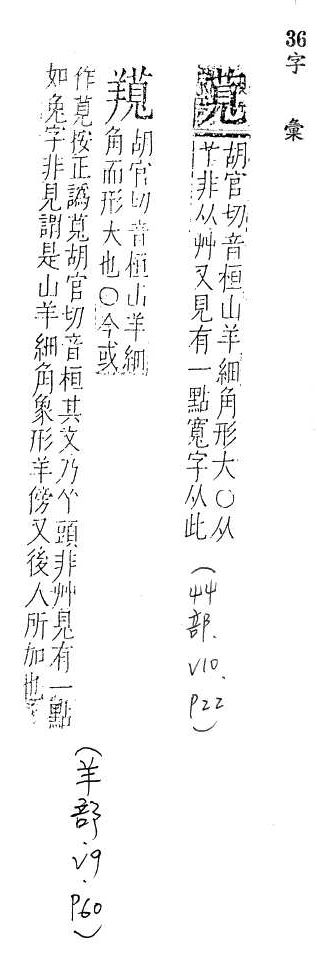 36字彙
萈
胡官切音桓山羊細角形大〇从
艹非从艸又見有一點寬字从此
(艸部.V10.P22)
羦
胡官切音桓山羊細
角而形大也〇今或
作萈按正譌萈胡官切音桓其文乃丫頭非艸見有一點
如兔字非見謂是山羊細角象形羊傍又後人所加也
(羊部.V9.P60)